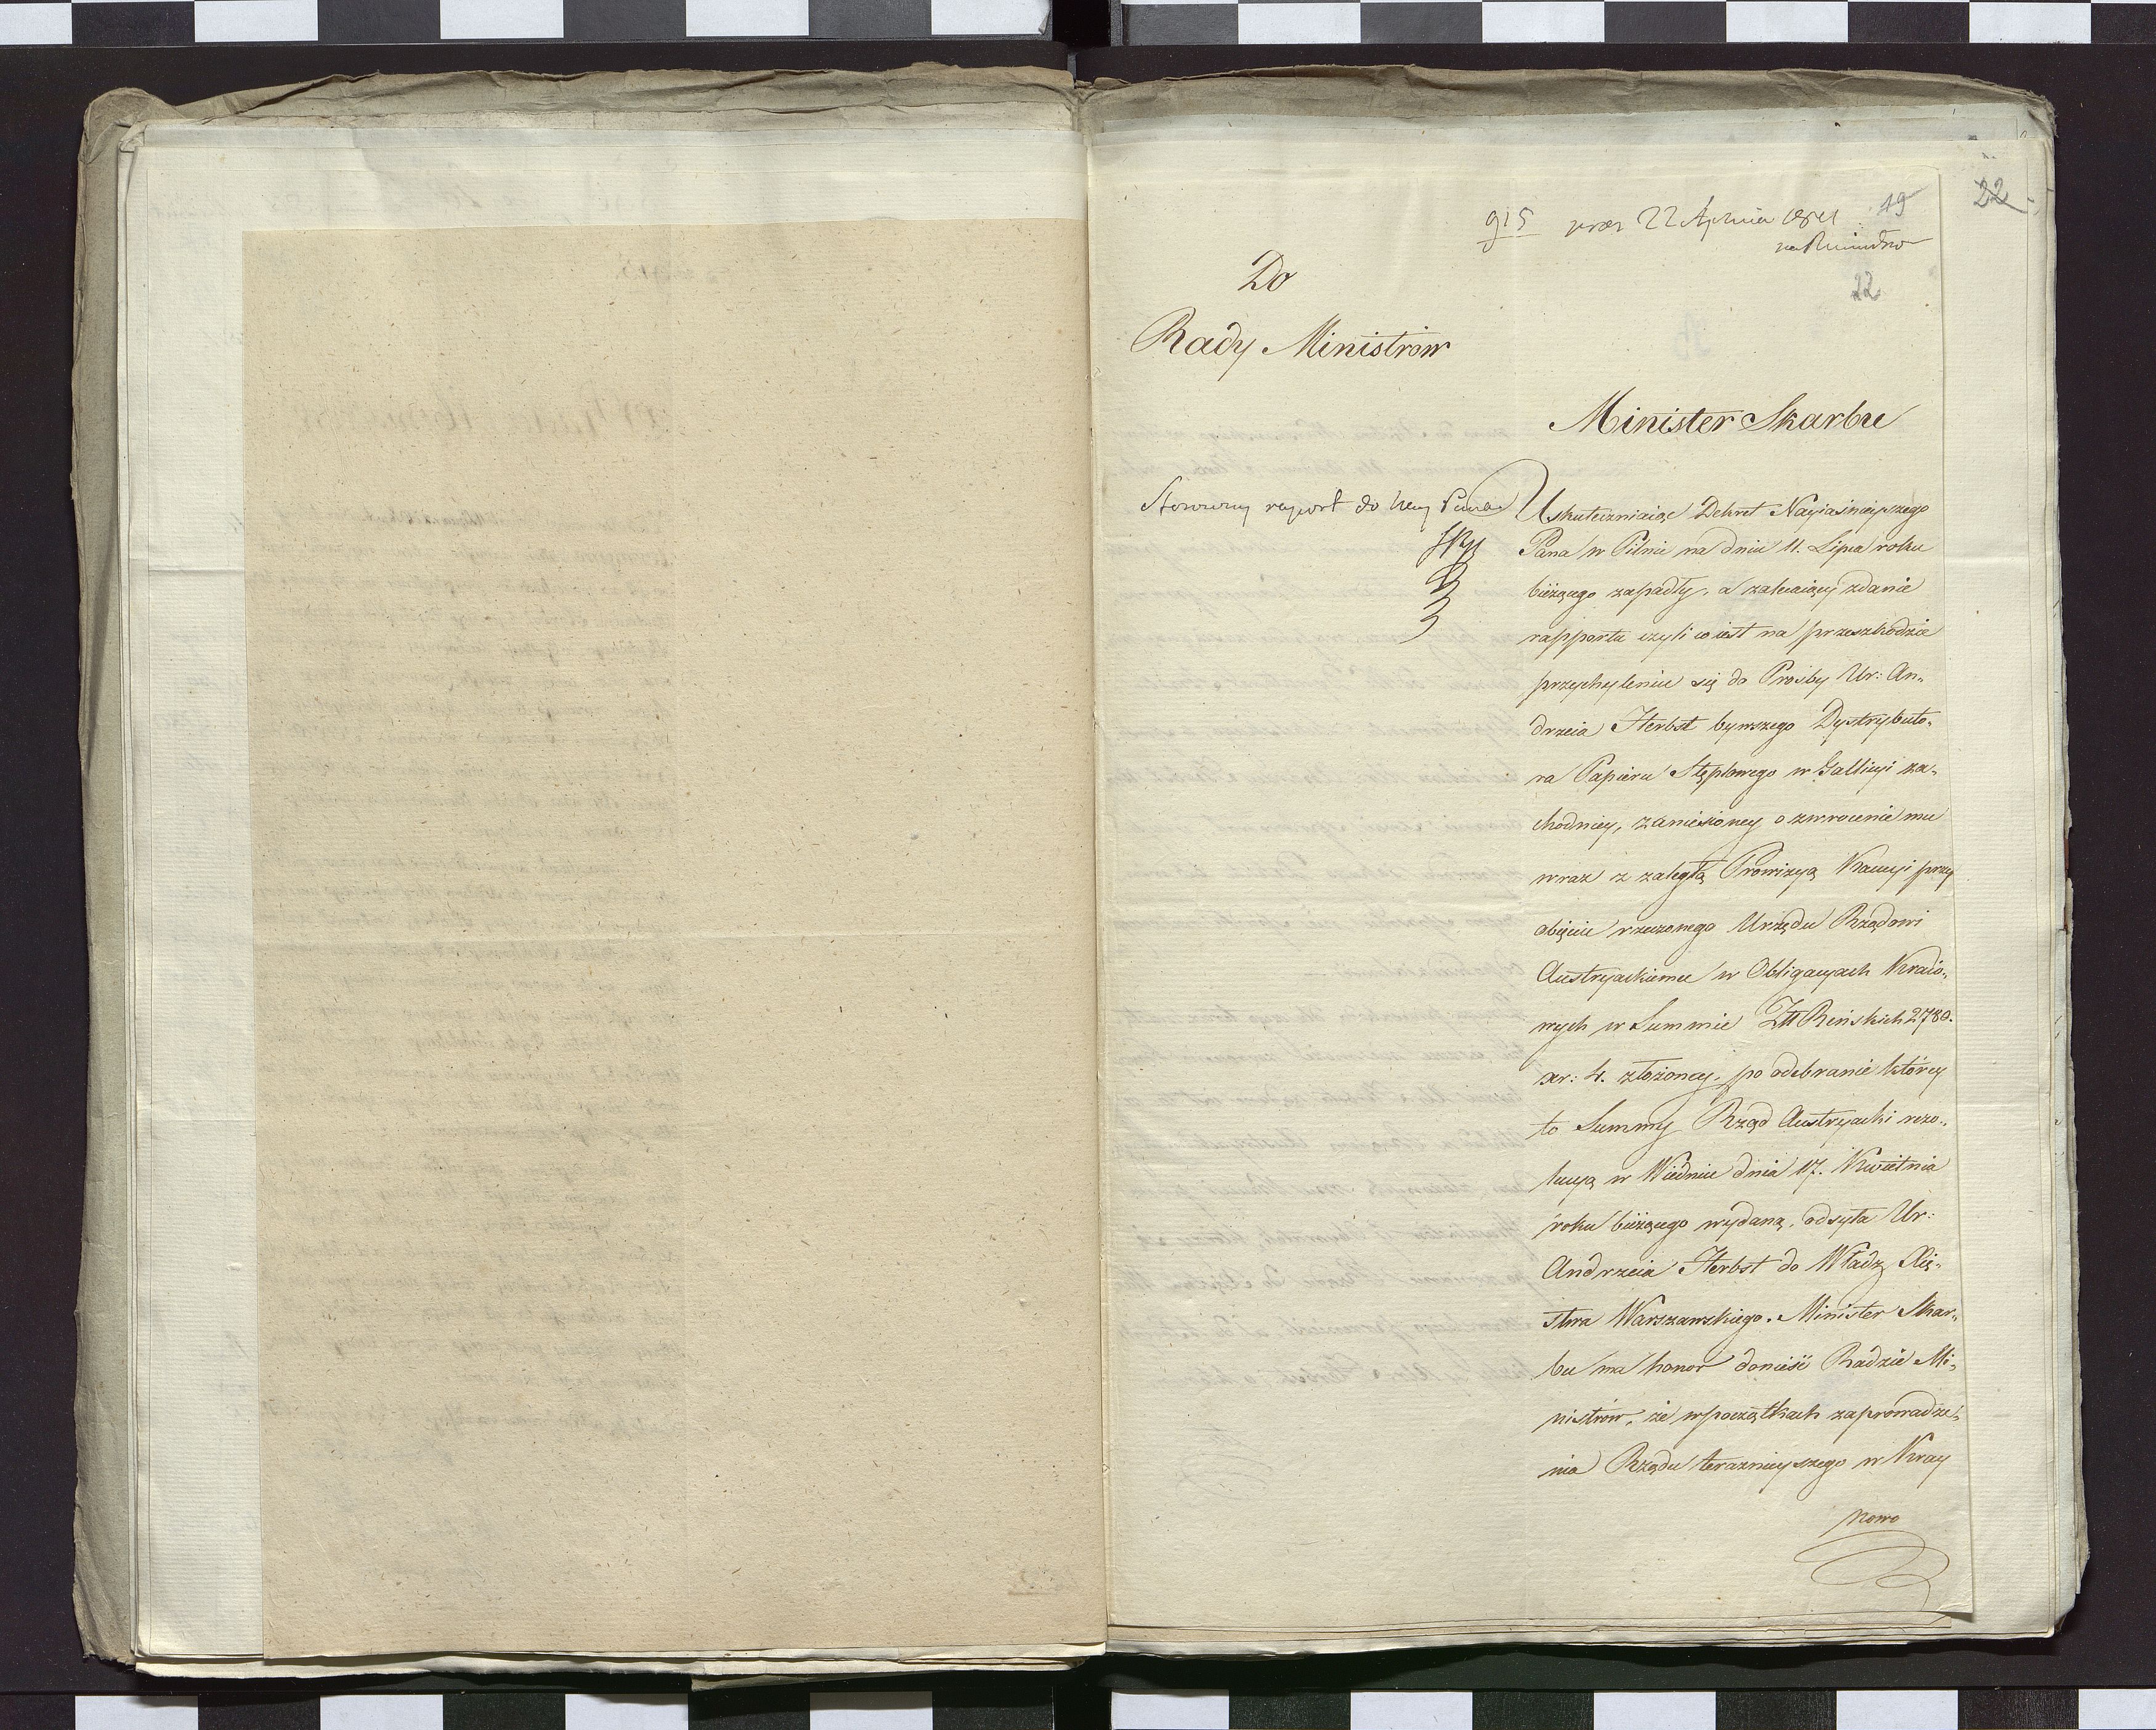 915 22 1811
19
22
22
Do
Rady Ministrów
Minister Skarbu
Stosowny raport do Ney Pana
Uskuteczniaiąc Dekret Nayiaśnieyszego
Pana w Pilnie na dniu 11. Lipca roku
bieżącego zapadły, a zalecaiący zdanie
rapportu czyli co iest na przeszkodzie
przychyleniu się do Prośby Ur: An„
drzeia Herbst bywszego Dystrybuto„
ra Papieru Stęplowego w Gallicyi za„
chodniey, zaniesioney o zwrócenie mu
wraz z zaległą Prowizyą Kaucyi przy
obięciu rzeczonego Urzędu Rządowi
Austryackiemu w Obligacyach Kraio„
wych w Summie Złł Reńskich 2780.
xr: 4. złożoney, po odebranie którey
to Summy Rząd Austryacki rezo„
lucyą w Wiedniu dnia 17. Kwietnia
roku bieżącego wydaną, odsyła Ur:
Andrzeia Herbst do Władz Xię„
stwa Warszawskiego. Minister Skar„
bu ma honor donieść Radzie Mi„
nistrów, że w początkach zaprowadze„
nia Rządu teraznieyszego w Kray
nowo